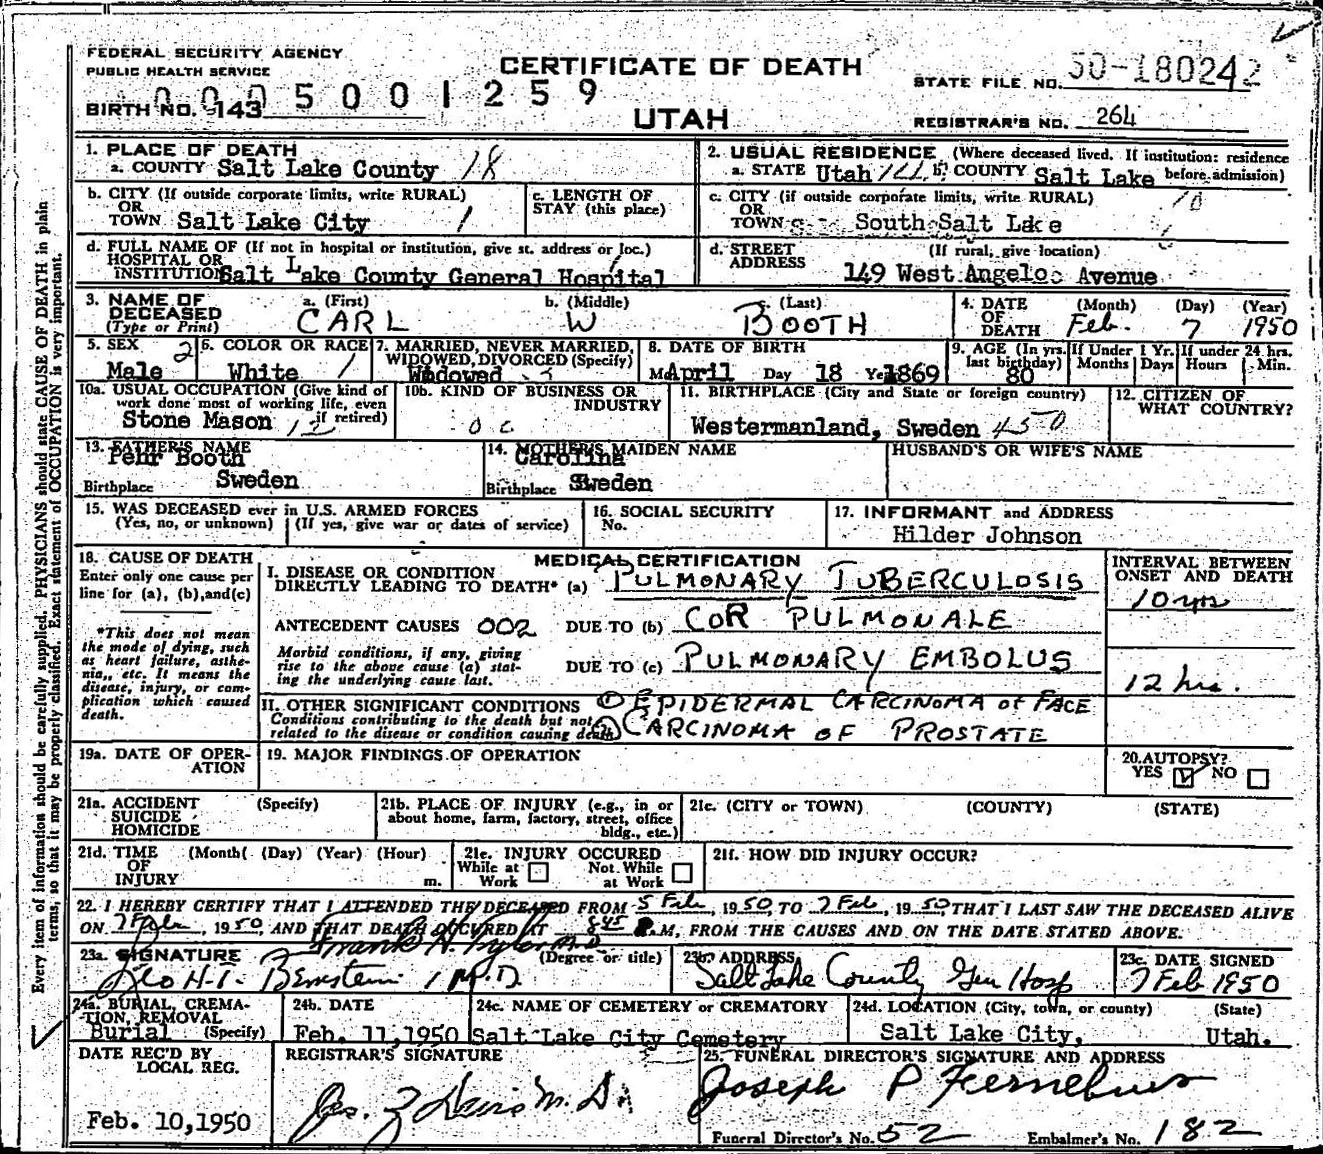 FEDERAL SECURITY AGENCY
PUBLIC HEALTH SERVICE
CERTIFICATE OF DEATH
STATE FILE NO. 50-180242
BIRTH NO. 143
0005001259
UTAH
REGISTRAR'S NO. 264
1. PLACE OF DEATH
a. COUNTY Salt Lake County 18
2. USUAL RESIDENCE (Where deceased lived. If institution: residence before admission)
a. STATE Utah b. COUNTY Salt Lake
b. CITY (If outside corporate limits, write RURAL)
OR
TOWN Salt Lake City 1
c. LENGTH OF STAY (this place)
c. CITY (if outside corporate limits, write RURAL)
OR
TOWN South Salt Lake
d. FULL NAME OF (If not in hospital or institution, give st. address or loc.)
HOSPITAL OR
INSTITUTION Salt Lake County General Hospital
d. STREET ADDRESS (If rural, give location)
149 West Angelo Avenue
3. NAME OF DECEASED (Type or Print)
a. (First) b. (Middle) c. (Last)
CARL W BOOTH
4. DATE OF DEATH (Month) (Day) (Year)
Feb. 7 1950
5. SEX 2
Male
6. COLOR OR RACE
White 1
7. MARRIED, NEVER MARRIED, WIDOWED, DIVORCED (Specify)
Widowed
8. DATE OF BIRTH
April Day 18 Year 1869
9. AGE (In yrs. last birthday)
80
If Under 1 Yr. Months Days
If under 24 hrs. Hours Min.
10a. USUAL OCCUPATION (Give kind of work done most of working life, even if retired)
Stone Mason
10b. KIND OF BUSINESS OR INDUSTRY
11. BIRTHPLACE (City and State or foreign country)
Westermanland, Sweden 450
12. CITIZEN OF WHAT COUNTRY?
13. FATHER'S NAME
Pehr Booth
Birthplace Sweden
14. MOTHER'S MAIDEN NAME
Carolina
Birthplace Sweden
HUSBAND'S OR WIFE'S NAME
15. WAS DECEASED ever in U.S. ARMED FORCES
(Yes, no, or unknown) (If yes, give war or dates of service)
16. SOCIAL SECURITY No.
17. INFORMANT and ADDRESS
Hilder Johnson
18. CAUSE OF DEATH
Enter only one cause per line for (a), (b), and (c)
*This does not mean the mode of dying, such as heart failure, asthenia,, etc. It means the disease, injury, or complication which caused death.
MEDICAL CERTIFICATION
INTERVAL BETWEEN ONSET AND DEATH
I. DISEASE OR CONDITION DIRECTLY LEADING TO DEATH* (a) PULMONARY TUBERCULOSIS
10 yrs
ANTECEDENT CAUSES 002 DUE TO (b) COR PULMONALE
Morbid conditions, if any, giving rise to the above cause (a) stating the underlying cause last.
DUE TO (c) PULMONARY EMBOLUS
12 hrs.
II. OTHER SIGNIFICANT CONDITIONS ① EPIDERMAL CARCINOMA of FACE
Conditions contributing to the death but not related to the disease or condition causing death ② CARCINOMA OF PROSTATE
19a. DATE OF OPERATION
19. MAJOR FINDINGS OF OPERATION
20. AUTOPSY?
YES NO
21a. ACCIDENT SUICIDE HOMICIDE (Specify)
21b. PLACE OF INJURY (e.g., in or about home, farm, factory, street, office bldg., etc.)
21c. (CITY or TOWN) (COUNTY) (STATE)
21d. TIME OF INJURY (Month( (Day) (Year) (Hour) m.
21e. INJURY OCCURED
While at Work Not While at Work
21f. HOW DID INJURY OCCUR?
22. I HEREBY CERTIFY THAT I ATTENDED THE DECEASED FROM 5 Feb, 1950, TO 7 Feb, 1950, THAT I LAST SAW THE DECEASED ALIVE
ON 7 Feb, 1950, AND THAT DEATH OCCURED AT 8:45 P.M, FROM THE CAUSES AND ON THE DATE STATED ABOVE.
Frank H. Tyler M.D.
23a. SIGNATURE (Degree or title)
Bernstein M.D.
23b. ADDRESS
Salt Lake County Gen Hosp
23c. DATE SIGNED
7 Feb 1950
24a. BURIAL, CREMATION, REMOVAL (Specify)
Burial
24b. DATE
Feb. 11, 1950
24c. NAME OF CEMETERY or CREMATORY
Salt Lake City Cemetery
24d. LOCATION (City, town, or county) (State)
Salt Lake City, Utah.
DATE REC'D BY LOCAL REG.
Feb. 10, 1950
REGISTRAR'S SIGNATURE
25. FUNERAL DIRECTOR'S SIGNATURE AND ADDRESS
Joseph P
Funeral Director's No. 52 Embalmer's No. 182
Every item of information should be carefully supplied. PHYSICIANS should state CAUSE OF DEATH in plain
terms, so that it may be properly classified. Exact statement of OCCUPATION is very important.